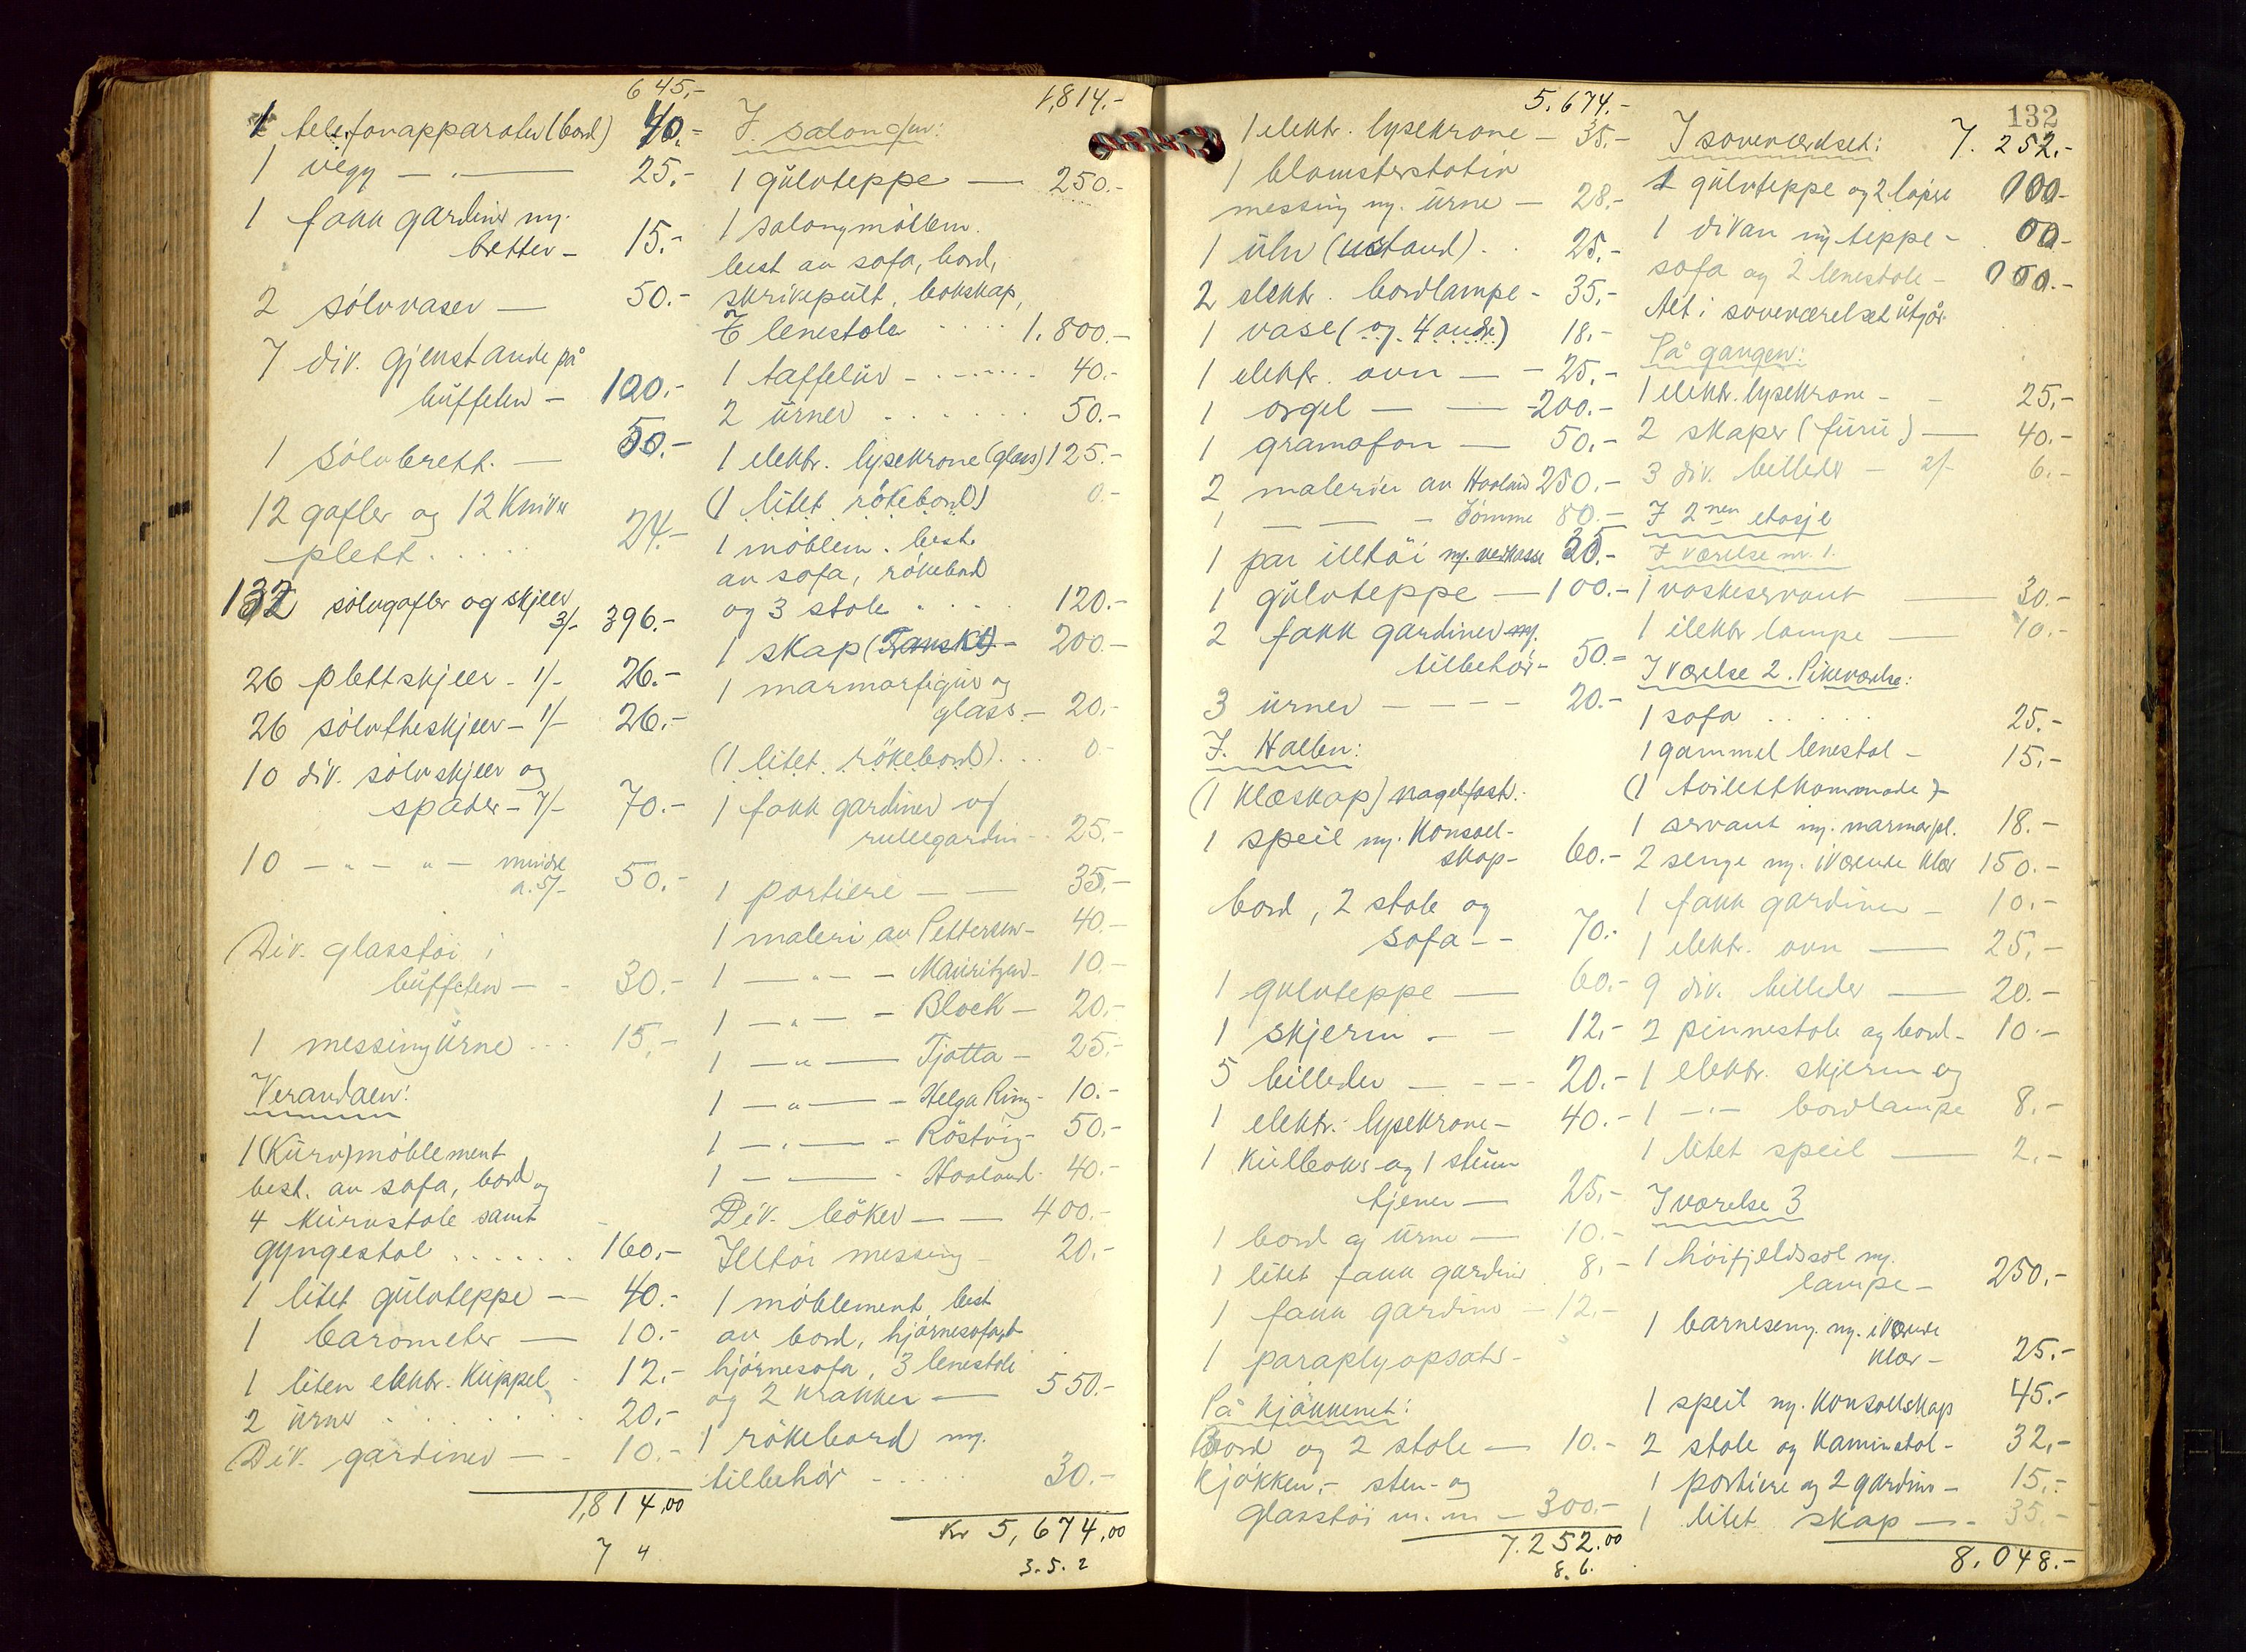 645,-
1 telefonapparater (bord) 40.-
1 vegg — . — 25.-
1 fakk gardiner m/.
bretter - 15.-
2 sölvvaser — 50.-
7 div. gjenstande på
büffeten - 120.-
1 sölvbrett. — 50.-
12 gafler og 12 Kniver
plett . . . . . 24.-
132 sölvgafler og skjeer
3/- 396.-
26 plettskjeer - 1/- 26.-
26 sölvtheskjeer - 1/- 26.-
10 div. sölvskjeer og
spader - 7/- 70.-
10 — " — " — mindre
a. 5/- 50.-
Div. glasstöi i
büffeten — - 30.-
1 messingürne . . . 15.-
Verandaen:
1 (Kürv) möblement
best. av sofa, bord og
4 kürvstole samt
gyngestol . . . . . . 160.-
1 litet gülvteppe — 40.-
1 barometer — 10.-
1 liten elektr. Küppel - 12.-
2 ürner . . . . . . 20.-
Div. gardiner — - 10.-
1,814,00
7 4
1,814.-
I. salongen:
1 gülvteppe — 250.-
1 salongmöblem.
best av sofa, bord,
skrivepült, bokskap,
7 lenestole . . . . 1.800.-
1 taffelür - . - . - . 40.-
2 ürner . . . . . . 50.-
1 elektr. lysekrone (glass) 125.-
(1 litet rökebord) 0.-
1 möblem. best.
av sofa, rökebord
og 3 stole . . . . 120.-
1 skap (Franskt) - 200.-
1 marmorfigür og
glass. - 20.-
(1 litet rökebord) . . . 0.-
1 fakk gardiner og
rullegardin - . 25.-
1 portiere — — 35.-
1 maleri av Pettersen - 40.-
1 — " — - Mauritzen - 10.-
1 — " — - Block - 20.-
1 — " — Tjotta - 25.-
1 — " — - Helga Ring - 10.-
1 — . — - Röstvig - 50.-
1 — . — - Haaland - 40.-
Div. böker — — 400.-
Iltöi messing - 20.-
1 möblement best
av bord, hjörnesofa,
hjörnesofa, 3 lenestole
og 2 krakker — 550.-
1 rökebord m/.
tilbehör - . . . . 30.-
Kr 5,674,00
3.5.2
5.674.-
1 elektr. lysekrone - 35.-
1 blomsterstativ
messing m/. ürne - 28.-
1 ühr (ustand) . . 25.-
2 elektr. bordlampe - 35.-
1 vase (og 4 andre) 18.-
1 elektr. ovn — - 25.-
1 orgel — — - 200.-
1 gramofon — 50.-
2 malerier av Haaland 250.-
1 — — - Sömme 80.-
1 par illtöi m/. vedkasse 35.-
1 gülvteppe — 100.-
2 fakk gardiner m/.
tilbehör - 50.-
3 ürner - - - - 20.-
I. Hallen:
(1 Klæskap) nagelfast.
1 speil m/. Konsoll-
skap - 60.-
bord, 2 stole og
sofa - - 70.-
1 gulvteppe — 60.-
1 skjerm - - 12.-
5 billeder — - - - 20.-
1 elektr. lysekrone - 40.-
1 Külboks og 1 stüm
tjener — 25.-
1 bord og ürne — 10.-
1 litet fakk gardiner . 8.-
1 fakk gardiner - 12.-
1 paraplyopsats -
På kjökkenet:
Bord og 2 stole — 10.-
Kjökken,- sten- og
glasstöi m.m - 300.-
7.252.00
8.6.
132
I soveværelset: 7.252.-
1 gülvteppe og 2 löpere 100-
1 divan m/ teppe - . 00-
sofa og 2 lenestole - 100.-
Alt i soveværelset ütgår
På gangen:
1 elektr. lysekrone - - 25.-
2 skaper (fürü) — 40.-
3 div. billeder - 2/- 6.-
I 2nen etasje
I værelse nr. 1.
1 vaskeservant — 30.-
1 elektr lampe — 10.-
I værelse 2. Pikeværelse:
1 sofa . . . . . 25.-
1 gammel lenestol - 15.-
(1 toilettkommode) -
1 servant m/. marmorpl. 18.-
2 senge m/. iværende Klær 150.-
1 fakk gardiner - 10.-
1 elektr. ovn — 25.-
9 div. billeder — 20.-
2 pinnestole og bord - 10.-
1 elektr. skjerm og
1 - " - bordlampe 8.-
1 litet speil — 2.-
I værelse 3
1 höifjeldssol m/.
lampe - 250.-
1 barneseng. m/. iværende
klær - 25.-
1 speil m/. Konsollskap 45.-
2 stole og Kaminstol - 32.-
1 portiere og 2 gardiner - 15.-
1 litet skap — - 35.-
8.048.-